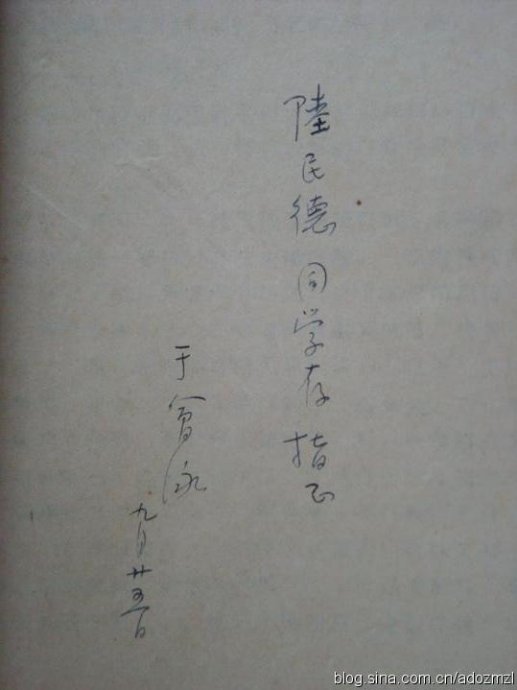 陸民德同学存 指正
于會泳
九月廿五日
blog.sina.com.cn/adozmzl